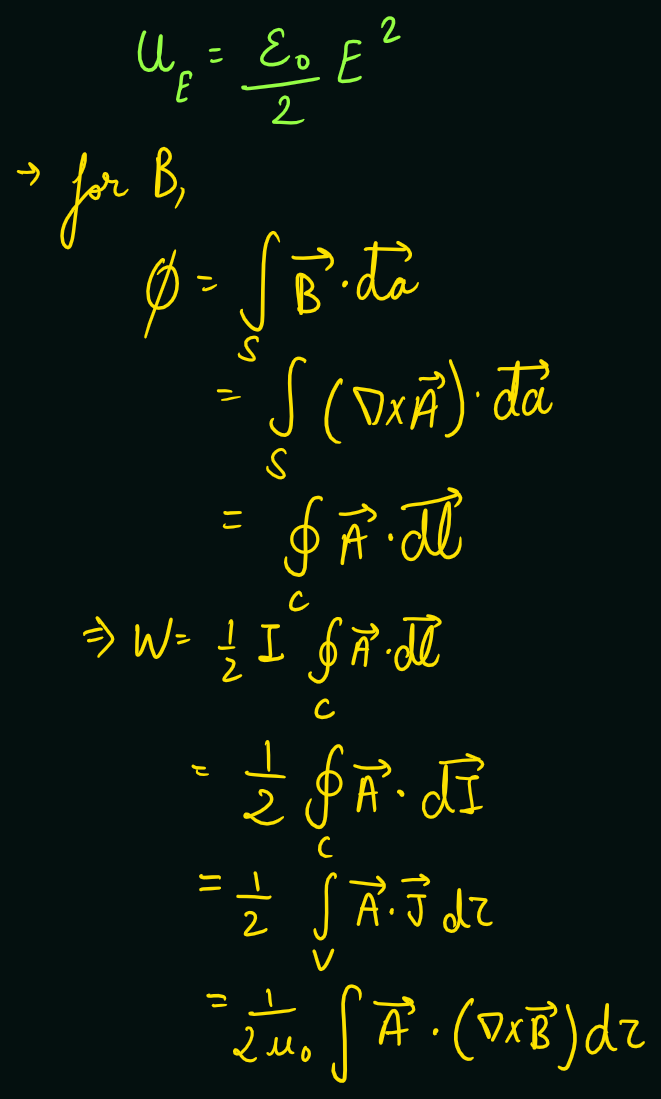 u_E = ε₀/2 E²
→ for B,
ϕ = ∫_S B⃗ · d⃗a
= ∫_S (∇×A⃗) · d⃗a
= ∮_C A⃗ · d⃗l
⇒ W = 1/2 I ∮_C A⃗ · d⃗l
= 1/2 ∮_C A⃗ · d⃗I
= 1/2 ∫_V A⃗ · J⃗ dτ
= 1/2μ₀ ∫ A⃗ · (∇×B⃗) dτ